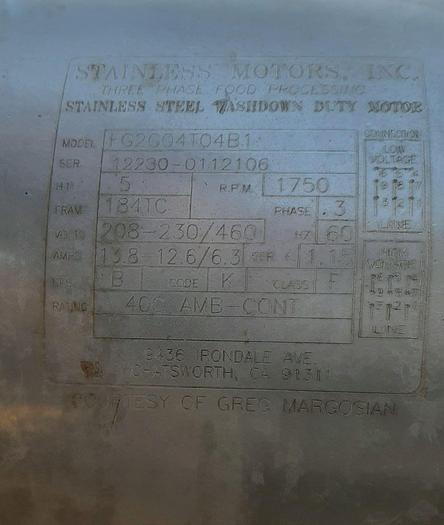 STAINLESS MOTORS, INC.
THREE PHASE FOOD PROCESSING
STAINLESS STEEL WASHDOWN DUTY MOTOR
MODEL
SER. 12230-0112106
HP 5 R.P.M. 1750
FRAME 184TC PHASE 3
VOLTS 208-230/460 HZ 60
AMPS 13.8-12.6/6.3 SER. F. 1.15
B CODE K CLASS F
RATING 40C AMB-CONT
CONNECTION
LOW
VOLTAGE
LINE
HIGH
VOLTAGE
LINE
9436 IRONDALE AVE.
CHATSWORTH, CA 91311
COURTESY OF GREG MARGOSIAN